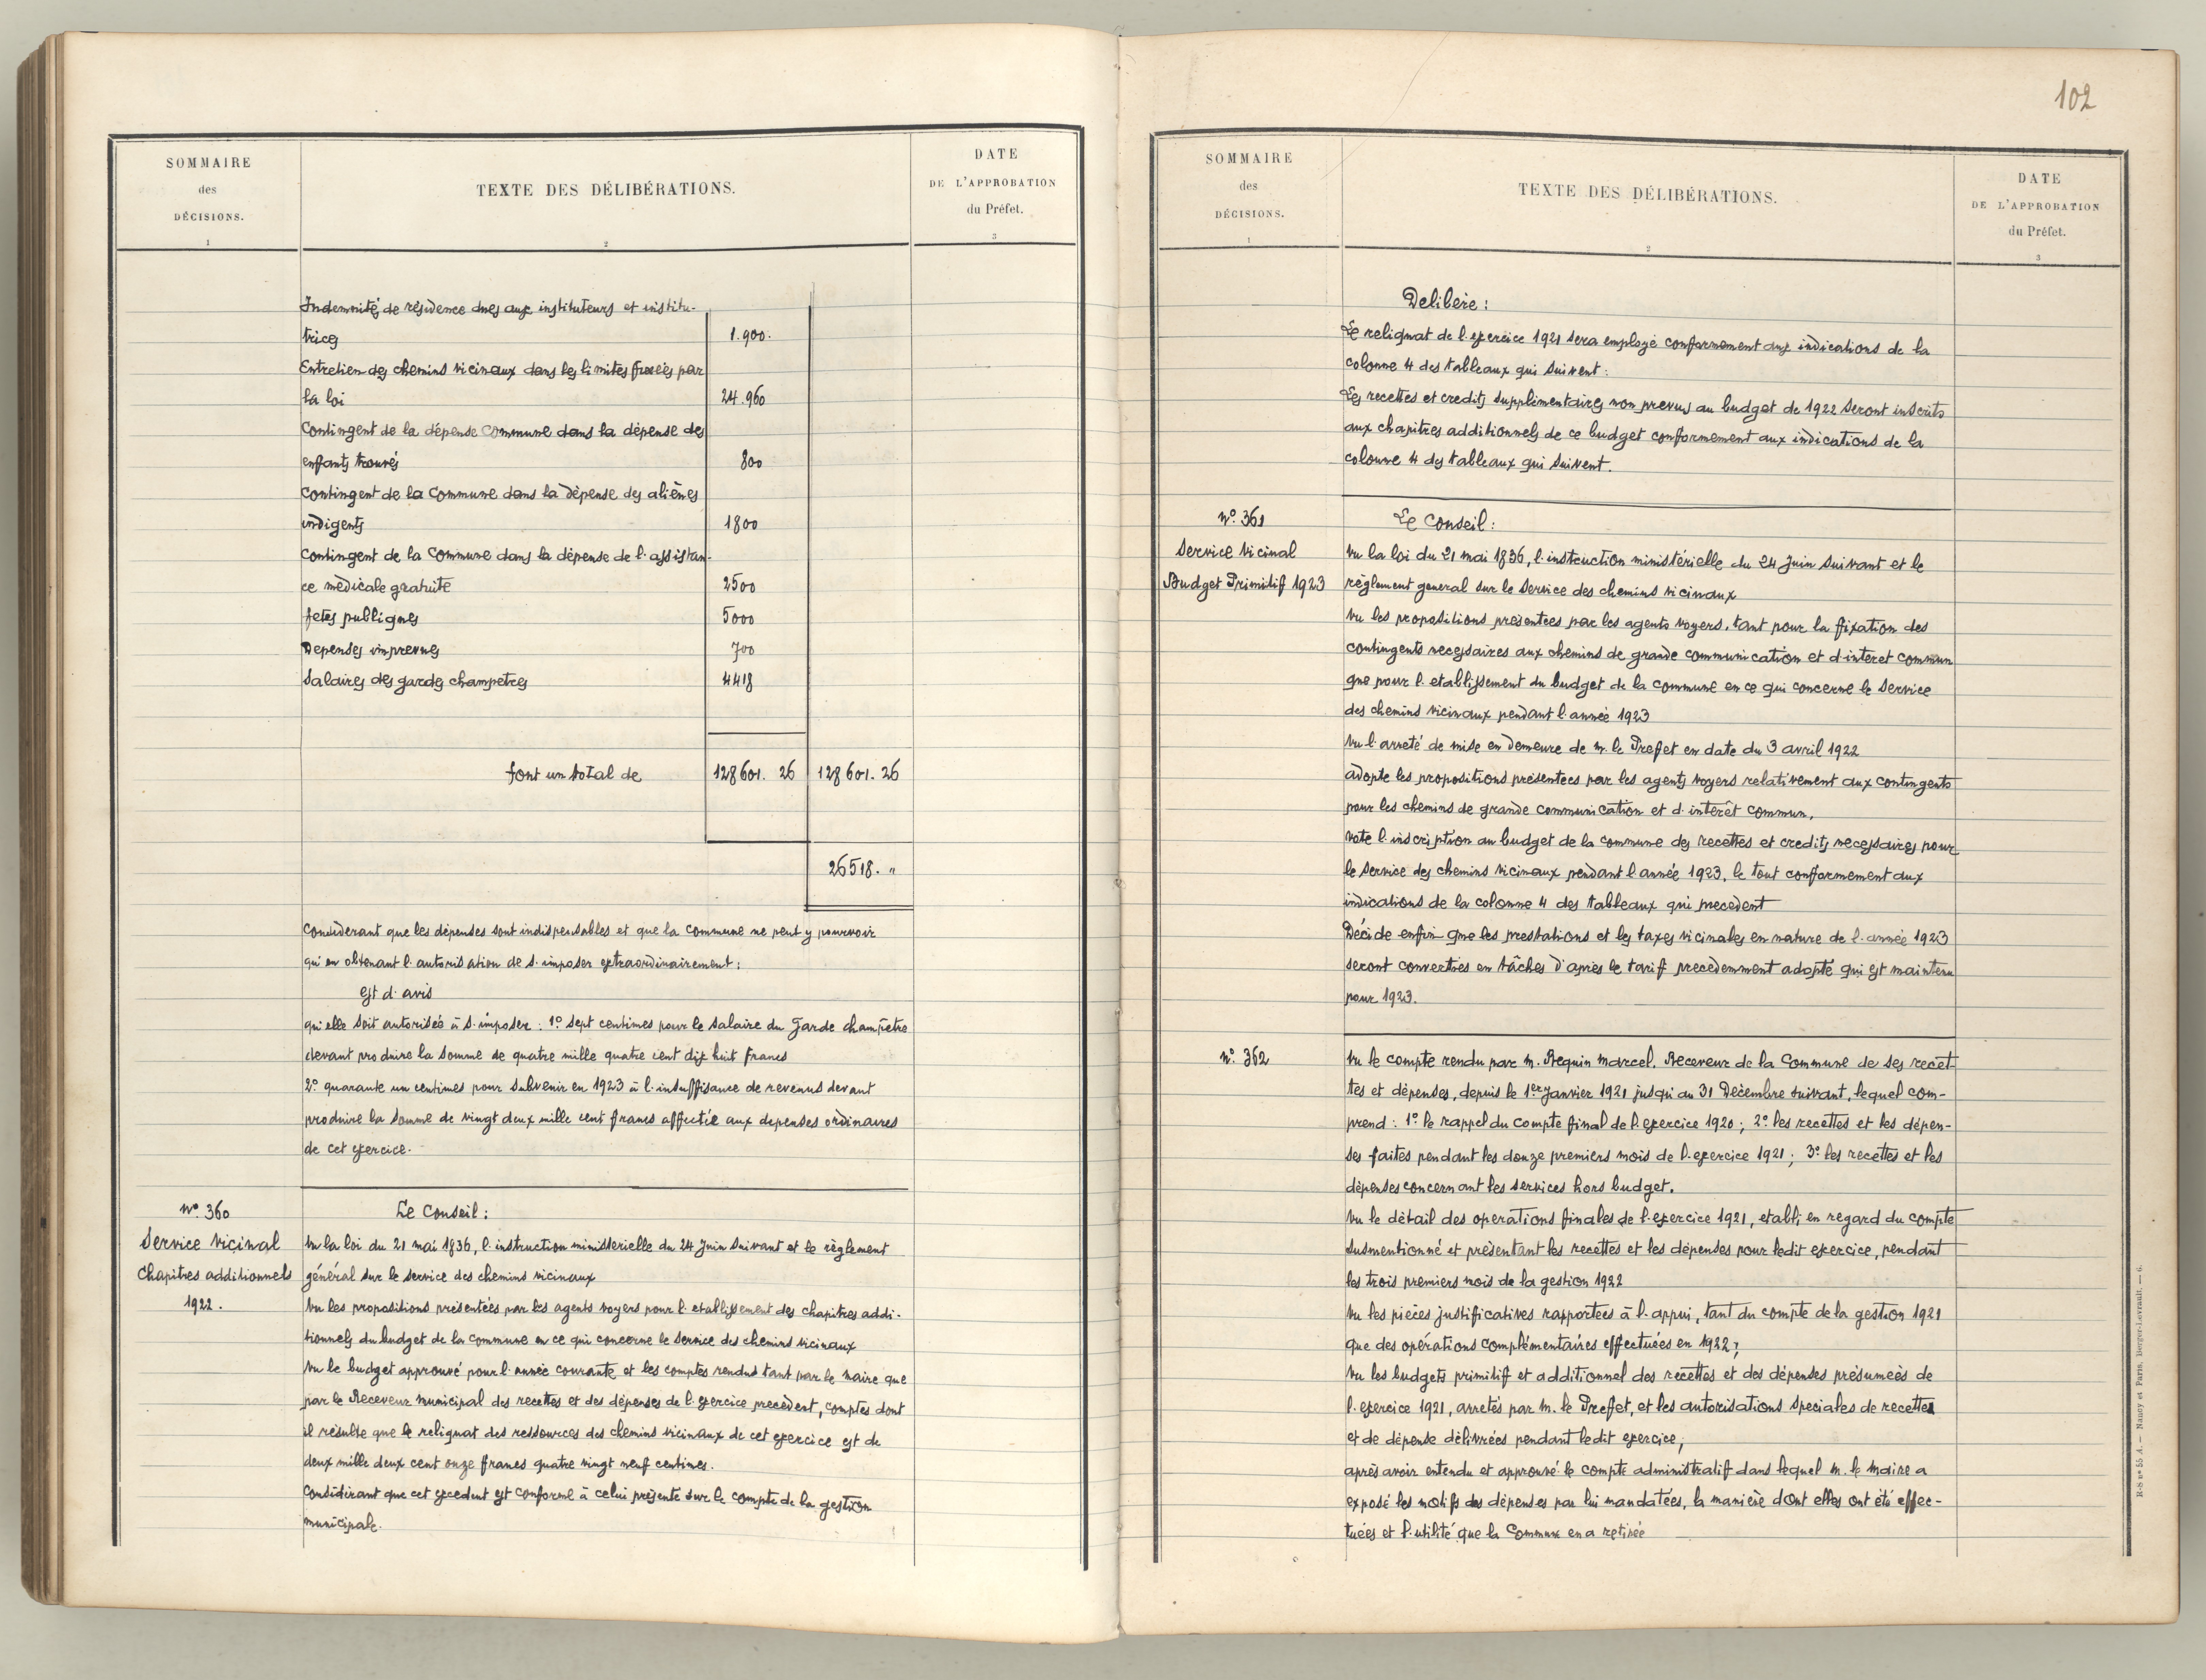 SOMMAIRE
des
DÉCISIONS.
1
TEXTE DES DÉLIBÉRATIONS.
2
DATE
DE L'APPROBATION
du Préfet.
3
Indemnité de résidence dues aux instituteurs et institu-
trices 1.900.
Entretien des chemins vicinaux dans les limites fixées par
la loi 24.960
Contingent de la dépense commune dans la dépense des
enfants trouvés 800
Contingent de la Commune dans la dépense des aliénés
indigents 1800
Contingent de la Commune dans la dépense de l'assistan-
ce médicale gratuite 2500
fetes publiques 5000
Depenses imprevues 700
Salaires des gardes champetres 4418
font un total de 128601. 26 128601. 26
26518. "
Considerant que les dépenses sont indispensables et que la commune ne peut y pourvoir
qu'en obtenant l'autorisation de s'imposer extraordinairement :
est d'avis
qu'elle soit autorisée à s'imposer : 1º sept centimes pour le salaire du Garde champêtre
devant produire la somme de quatre mille quatre cent dix huit francs
2º quarante un centimes pour subvenir en 1923 à l'insuffisance de revenus devant
produire la somme de vingt deux mille cent francs affectée aux depenses ordinaires
de cet exercice.
Nº 360
Service Vicinal
Chapitres additionnels
1922.
Le Conseil :
Vu la loi du 21 mai 1836, l'instruction ministerielle du 24 Juin suivant et le règlement
général sur le service des chemins vicinaux
Vu les propositions présentées par les agents voyers pour l'etablissement des chapitres addi-
tionnels du budget de la commune en ce qui concerne le service des chemins vicinaux
Vu le budget approuvé pour l'année courante et les comptes rendus tant par le maire que
par le Receveur municipal des recettes et des dépenses de l'exercice precèdent, comptes dont
il résulte que le reliquat des ressources des chemins vicinaux de cet exercice est de
deux mille deux cent onze francs quatre vingt neuf centimes.
Considérant que cet excedent est conforme à celui présente sur le compte de la gestion
municipale.
102
SOMMAIRE
des
DÉCISIONS.
1
TEXTE DES DÉLIBÉRATIONS.
2
DATE
DE L'APPROBATION
du Préfet.
3
Delibère :
Le reliquat de l'exercice 1921 sera employé conformement aux indications de la
colonne 4 des tableaux qui suivent :
Les recettes et credits supplémentaires non prevus au budget de 1922 seront inscrits
aux chapitres additionnels de ce budget conformement aux indications de la
colonne 4 des tableaux qui suivent.
Nº 361
Service Vicinal
Budget Primitif 1923
Le Conseil :
Vu la loi du 21 mai 1836, l'instruction ministérielle du 24 Juin suivant et le
règlement general sur le service des chemins vicinaux
Vu les propositions présentées par les agents voyers, tant pour la fixation des
contingents necessaires aux chemins de grande communication et d'interet commun
que pour l'etablissement du budget de la commune en ce qui concerne le service
des chemins vicinaux pendant l'année 1923
Vu l'arreté de mise en demeure de M. le Prefet en date du 3 avril 1922
adopte les propositions présentees par les agents voyers relativement aux contingents
pour les chemins de grande communication et d'interêt commun,
vote l'inscription au budget de la commune des recettes et credits necessaires pour
le service des chemins vicinaux pendant l'année 1923, le tout conformement aux
indications de la colonne 4 des tableaux qui precedent
Décide enfin que les prestations et les taxes vicinales en nature de l'année 1923
seront converties en tâches d'après le tarif precedemment adopté qui est maintenu
pour 1923.
Nº 362
Vu le compte rendu par M. Requin Marcel, Receveur de la Commune de ses recet-
tes et dépenses, depuis le 1er Janvier 1921 jusqu'au 31 Décembre suivant, lequel com-
prend : 1º le rappel du compte final de l'exercice 1920 ; 2º les recettes et les dépen-
ses faites pendant les douze premiers mois de l'exercice 1921 ; 3º les recettes et les
dépenses concernant les services hors budget.
Vu le détail des operations finales de l'exercice 1921, etabli en regard du compte
susmentionné et présentant les recettes et les dépenses pour ledit exercice, pendant
les trois premiers mois de la gestion 1922
Vu les pièces justificatives rapportées à l'appui, tant du compte de la gestion 1921
que des opérations complémentaires effectuées en 1922 ;
Vu les budgets primitif et additionnel des recettes et des dépenses présumées de
l'exercice 1921, arretés par M. le Prefet, et les autorisations speciales de recettes
et de dépense délivrées pendant ledit exercice ;
après avoir entendu et approuvé le compte administratif dans lequel M. le Maire a
exposé les motifs des dépenses par lui mandatées, la manière dont elles ont été effec-
tuées et l'utilité que la Commune en a retirée
R-S nº 55 A. — Nancy et Paris, Berger-Levrault. — 6.